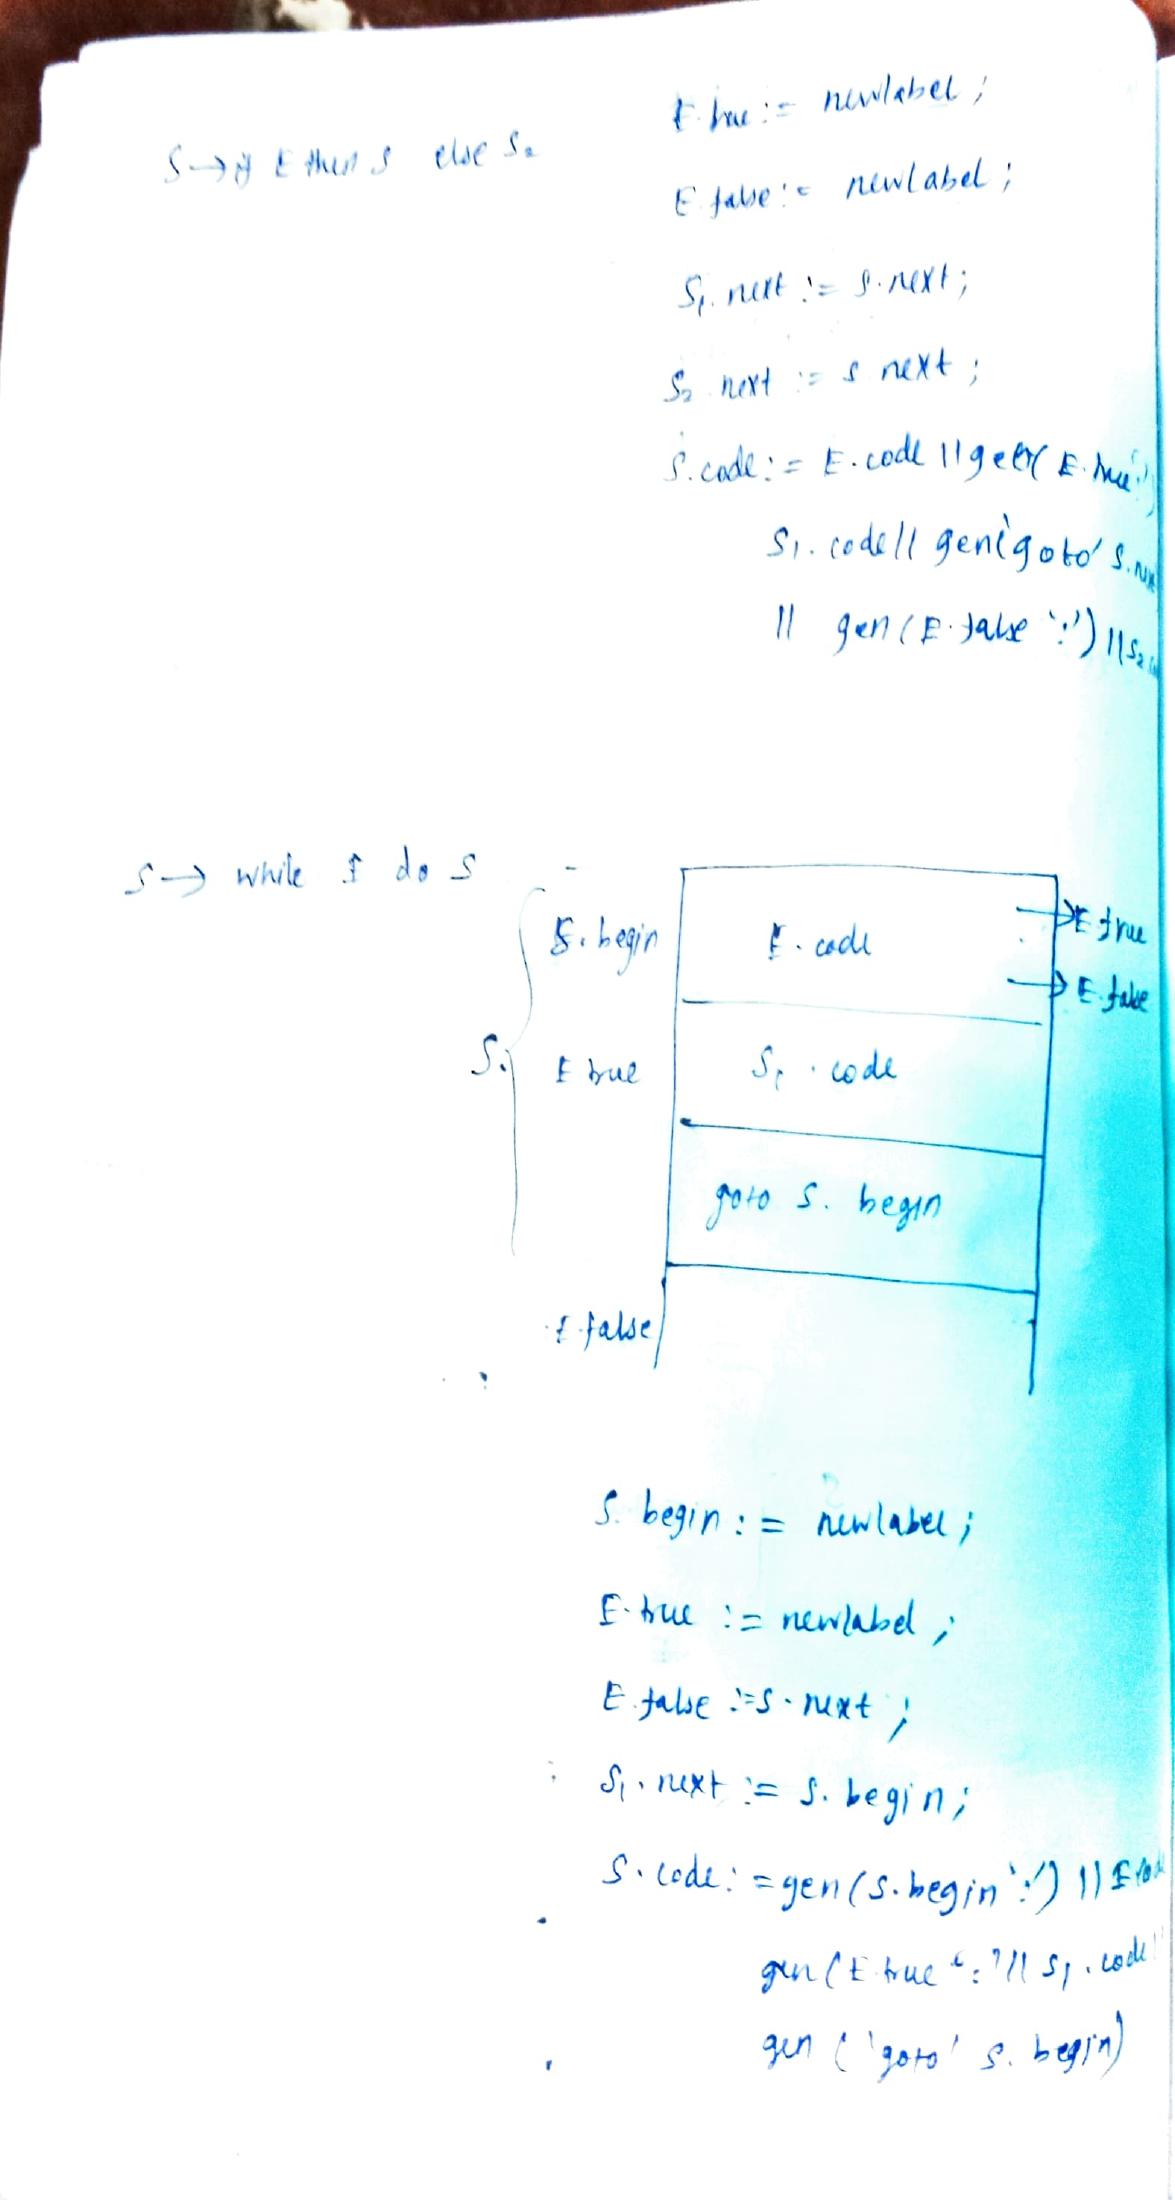 S → if E then S else S₂
E.true := newlabel ;
E.false := newlabel ;
S₁.next := S.next ;
S₂ next := S next ;
S.code := E.code || gen( E.true ':')
S₁.code || gen('goto' S.
|| gen ( E.false ':') || S₂
S → while E do S
S.begin E.code E true
E.false
S. E true S₁ . code
goto S. begin
E.false
S. begin := newlabel ;
E.true := newlabel ;
E.false := S.next ;
S₁.next := S. begin ;
S.code := gen(S.begin ':') || E
gen ( E true ':' || S₁.code ||
gen ( 'goto' S. begin)